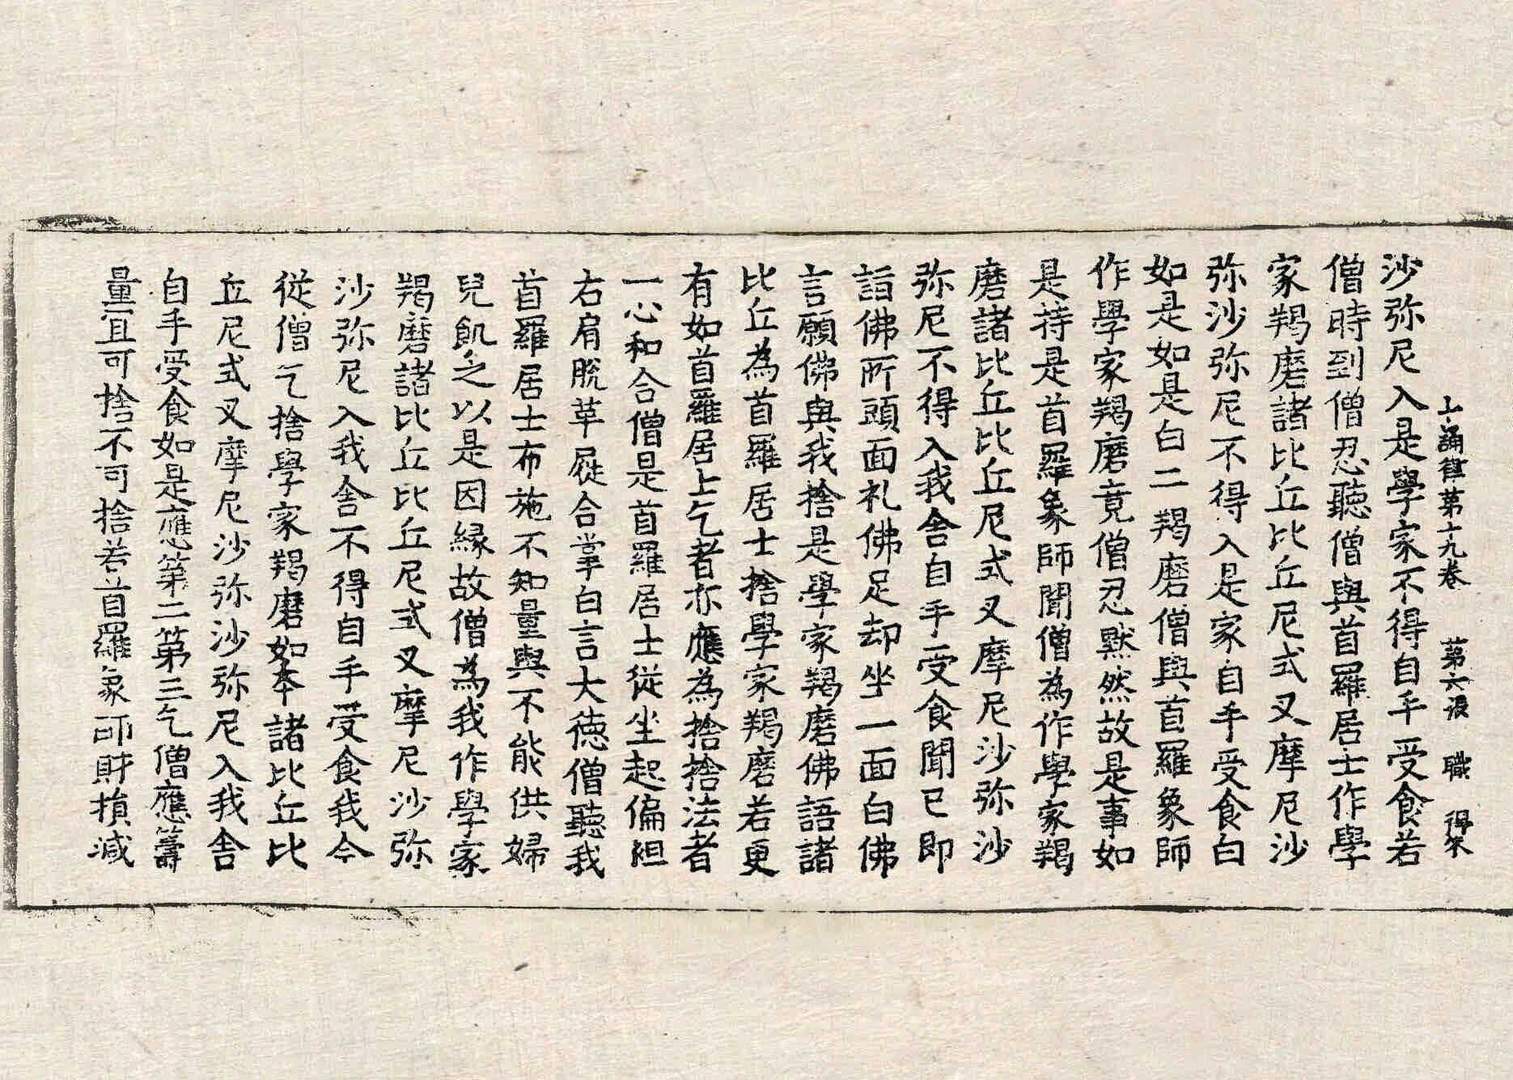 十誦律第十九卷　第六張　職　得來
沙弥尼入是學家不得自手受食若
僧時到僧忍聽僧與首羅居士作學
家羯磨諸比丘比丘尼式叉摩尼沙
弥沙弥尼不得入是家自手受食白
如是如是白二羯磨僧與首羅象師
作學家羯磨竟僧忍默然故是事如
是持是首羅象師聞僧為作學家羯
磨諸比丘比丘尼式叉摩尼沙弥沙
弥尼不得入我舍自手受食聞已即
詣佛所頭面礼佛足却坐一面白佛
言願佛與我捨是學家羯磨佛語諸
比丘為首羅居士捨學家羯磨若更
有如首羅居上乞者亦應為捨捨法者
一心和合僧是首羅居士從坐起偏袒
右肩脫革屣合掌白言大德僧聽我
首羅居士布施不知量與不能供婦
兒飢乏以是因緣故僧為我作學家
羯磨諸比丘比丘尼式叉摩尼沙弥
沙弥尼入我舍不得自手受食我今
從僧乞捨學家羯磨如本諸比丘比
丘尼式叉摩尼沙弥沙弥尼入我舍
自手受食如是應第二第三乞僧應籌
量宜可捨不可捨若首羅象師財損減